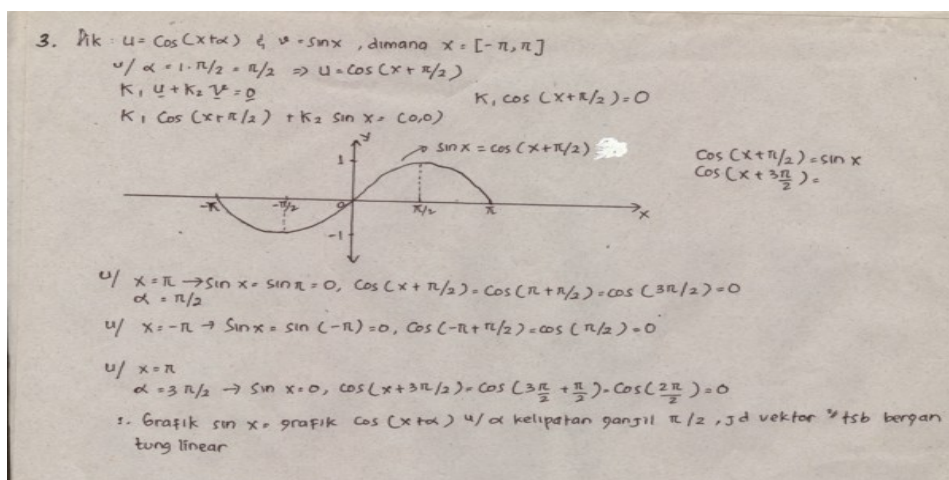 3. Dik : u = Cos (x+α) & v = sinx , dimana x = [-π, π]
u/ α = 1 . π/2 = π/2 ⇒ u = cos (x + π/2)
K₁ u + K₂ v = 0
K₁ cos (x+π/2) = 0
K₁ Cos (x+π/2) + K₂ sin x = (0,0)
y
1
sin x = cos (x+π/2)
Cos (x+π/2) = sin x
Cos (x + 3π/2) =
-π -π/2 0 π/2 π x
-1
u/ x = π → sin x = sin π = 0, cos (x + π/2) = cos (π + π/2) = cos (3π/2) = 0
α = π/2
u/ x = -π → Sin x = sin (-π) = 0, cos (-π + π/2) = cos (π/2) = 0
u/ x = π
α = 3 π/2 → sin x = 0, cos (x + 3π/2) = cos (3π/2 + π/2) = Cos (2π/2) = 0
∴ Grafik sin x = grafik cos (x+α) u/ α kelipatan ganjil π/2 , jd vektor ² tsb bergan
tung linear